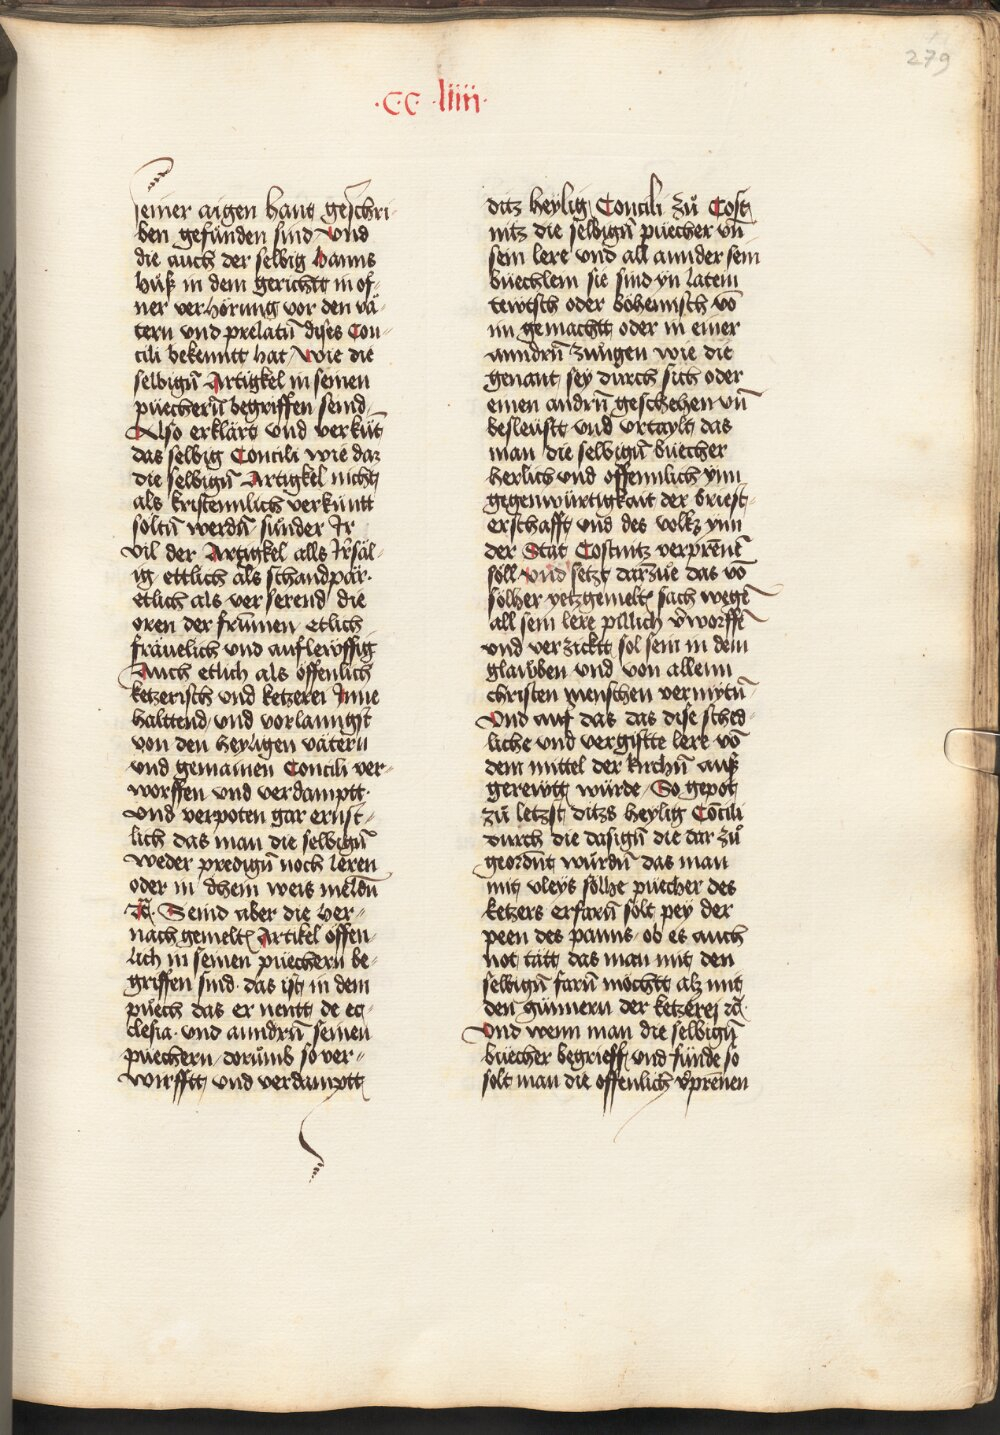 279
·CC·liiii·
seiner aigen hant geschri-
ben gefunden sind Vnd
die auch der selbig hanns
huß in dem gerichtt in of-
ner verhörung vor den vä-
tern vnd prelatn̄ dises Con-
cili bekenntt hat / Wie die
selbign̄ Artigkel in seinen
püechern̄ begriffen seind
Also erklärt vnd verkünt
das selbig Concili wie daz
die selbign̄ Artigkel nicht
als kristennlich verküntt
soltn̄ werdn̄ sunder Ir
vil der Artigkel alls Irsäl-
ig ettlich als schandpär·
etlich als verserend die
oren der frumen / etlich
fräuelich vnd aufleẅffig
Auch etlich als offenlich
ketzerisch vnd ketzerei Inne
halttend / vnd vorlanngst
von den heyligen vätern
vnd gemainen Concili ver-
worffen vnd verdamptt·
Vnd verpoten gar ernst-
lich das man die selbign̄
weder predign̄ noch leren
oder in dhein weis meldn̄
zc̄. Seind aber die her-
nach gemelt Artikel offen-
lich in seinen püechern be-
griffen sind· das ist in dem
püech das er nentt de ec-
clesia· vnd anndrn̄ seinen
püechern / dorumb so ver-
wirfftt vnd verdamptt
ditz heylig Concili zů Cost
nitz die selbign̄ püecher vn̄
sein lere vnd all annder sein
büechlein sie sind yn latein
tewtsch oder böhemisch vō
im gemachtt oder in einer
anndrn̄ zungen wie die
genant sey durch sich oder
einen andrn̄ geschehen vn̄
besleüstt vnd vrtaylt das
man die selbign̄ büecher
herlich vnd offennlich ynn
gegenwürtigkait der briest-
erschafft vnd des volkz ynn
der Stat Costnitz verprēnē
söll· vnd setzt darzůe das vō
sölher yetzgemelt sach wegē
all sein lere pillich v̄worffē
vnd verzicktt sol sein in dem
glauben vnd von allenn
christen menschen vermytn̄
Vnd auf das das dise sched-
liche vnd vergiftte lere vō
dem mittel der kirchn̄ auß
gereẅtt würde / So gepot
zů letzst ditzs heylig Cōcili
durch die dasign̄ die dar zů
geordnt würdn̄ das man
mit vleys sölhe püecher des
ketzers erfarn̄ solt pey der
peen des panns· ob es auch
not tätt das man mit den
selbign̄ farn̄ möchtt alz mit
den günnern der ketzerei zc̄·
Vnd wenn man die selbign̄
büecher begrieff vnd fünde so
solt man die offenlich v̄prēnen